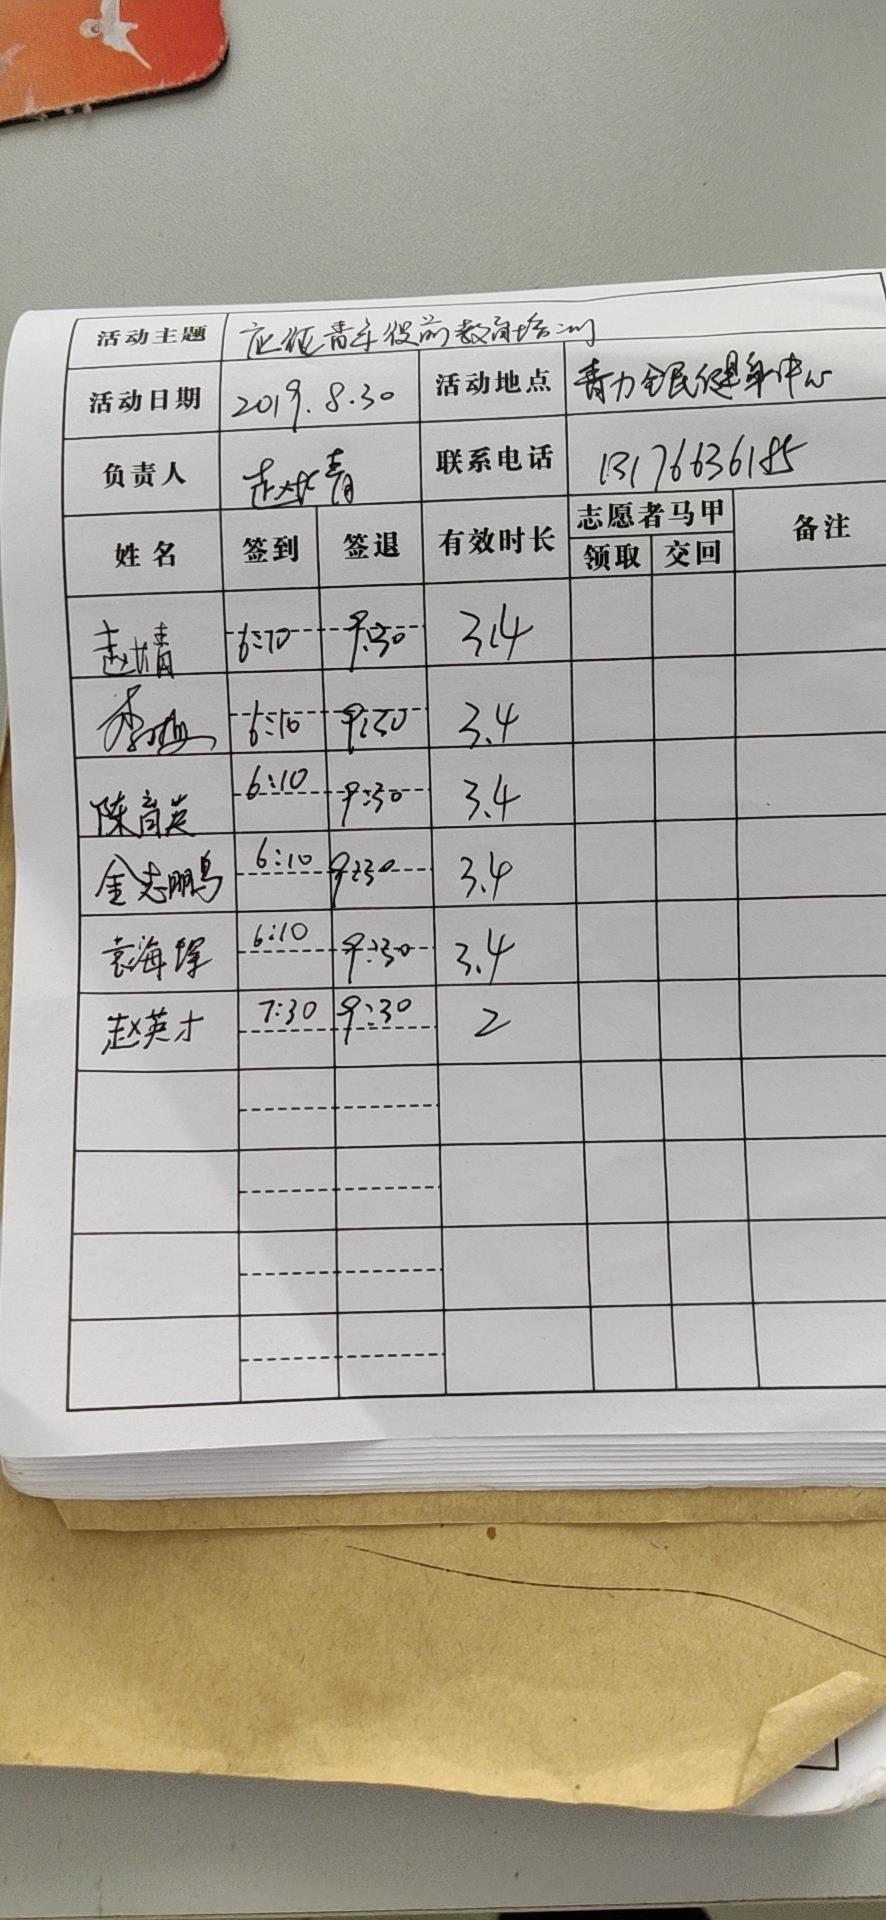 活动主题 应征青年役前教育培训
活动日期 2019.8.30 活动地点 青力全民健身中心
负责人 联系电话 13176636185
姓名 签到 签退 有效时长 志愿者马甲 备注
领取 交回
6:10 9:30 3.4
6:10 9:30 3.4
陈育英 6:10 9:30 3.4
金志鹏 6:10 9:30 3.4
袁海 6:10 9:30 3.4
赵英才 7:30 9:30 2